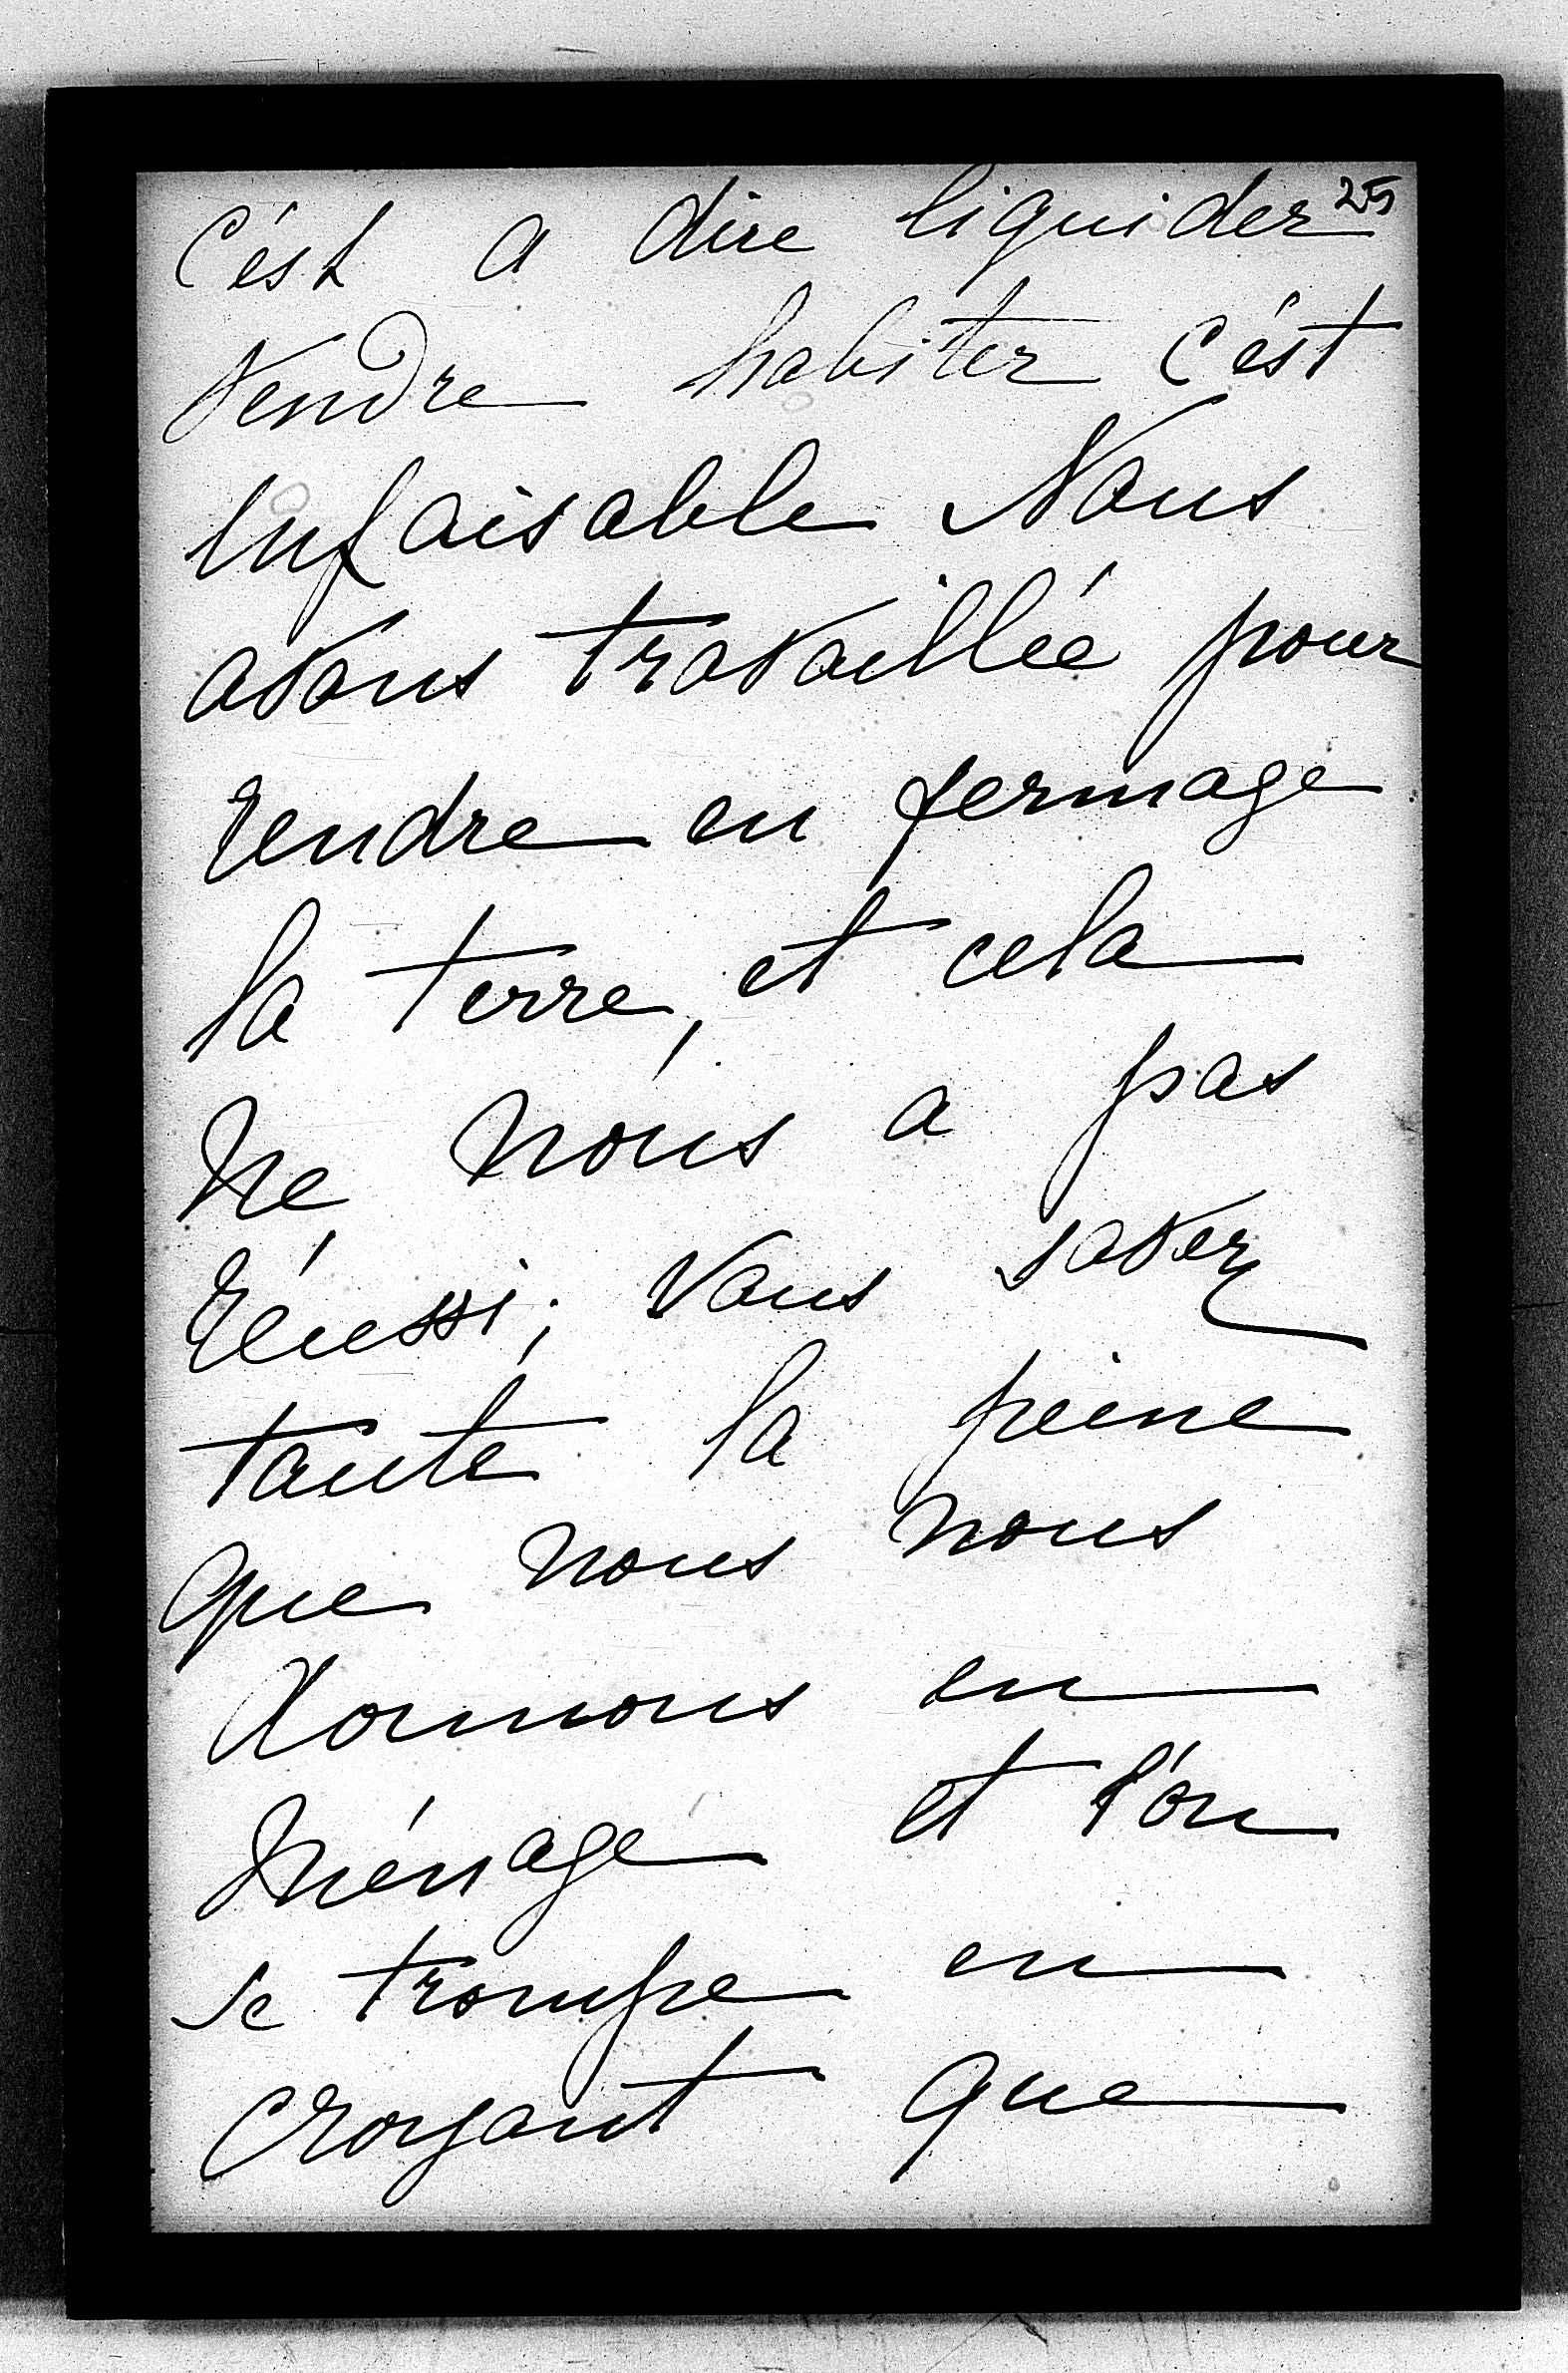 c'ést a dire liquider 25
Vendre habiter c'ést
infaisable Nous
avons travaillée pour
rendre en fermage
la terre, et cela
ne nous a pas
réussi; Vous savez
toute la peine
que nous nous
donnons en
ménage et l'on
se trompe en
croyant que